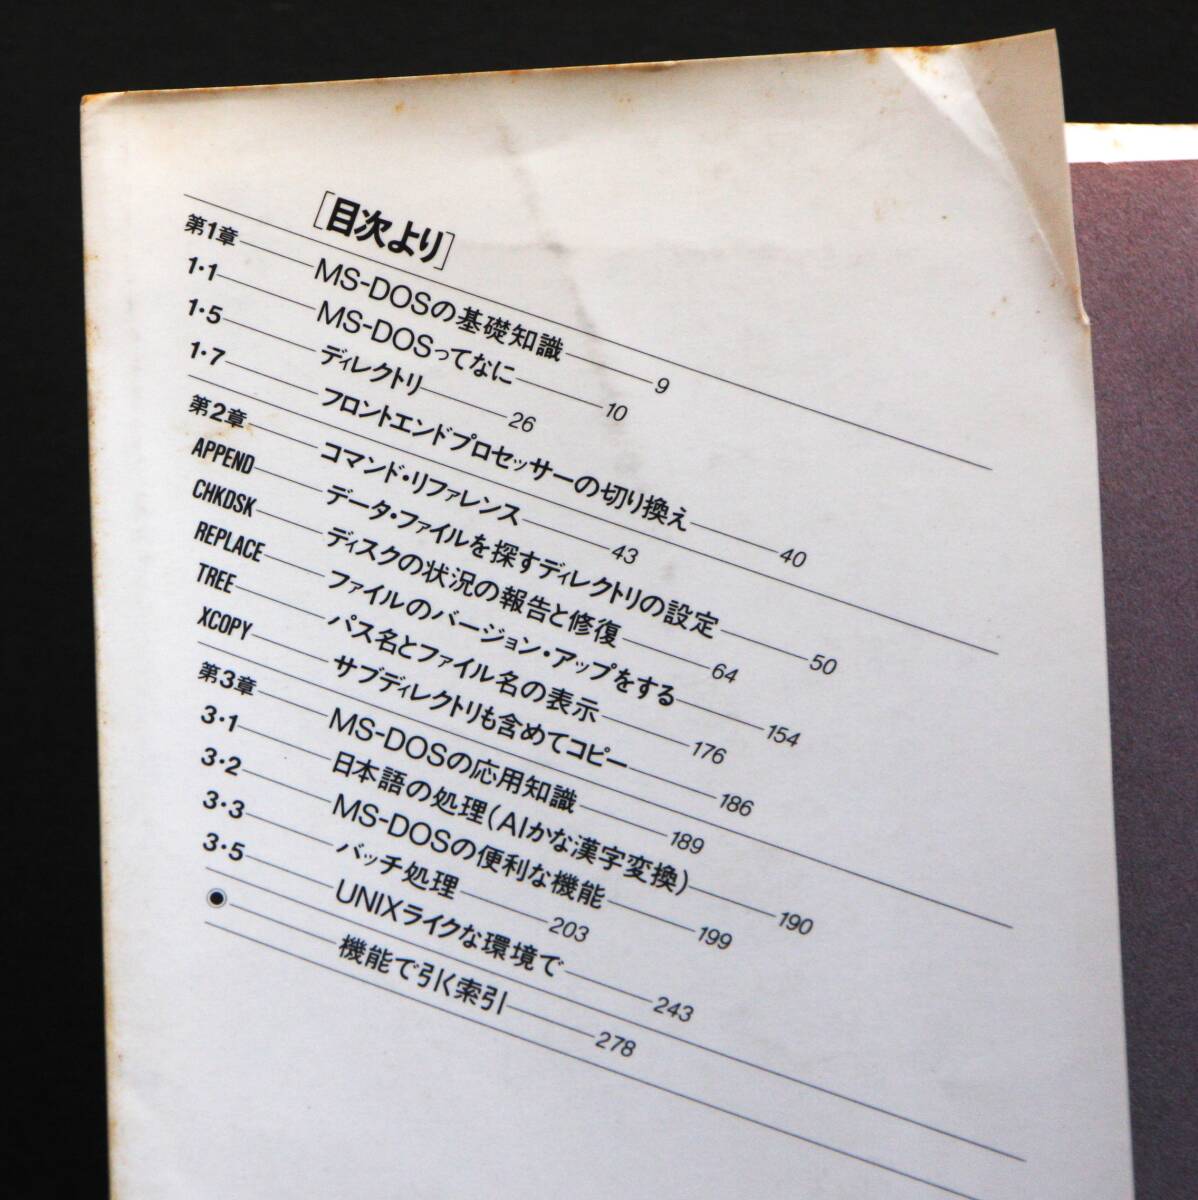 [目次より]
第1章 MS-DOSの基礎知識 9
1・1 MS-DOSってなに 10
1・5 ディレクトリ 26
1・7 フロントエンドプロセッサーの切り換え 40
第2章 コマンド・リファレンス 43
APPEND データ・ファイルを探すディレクトリの設定 50
CHKDSK ディスクの状況の報告と修復 64
REPLACE ファイルのバージョン・アップをする 154
TREE パス名とファイル名の表示 176
XCOPY サブディレクトリも含めてコピー 186
第3章 MS-DOSの応用知識 189
3・1 日本語の処理(AIかな漢字変換) 190
3・2 MS-DOSの便利な機能 199
3・3 バッチ処理 203
3・5 UNIXライクな環境で 243
◉ 機能で引く索引 278